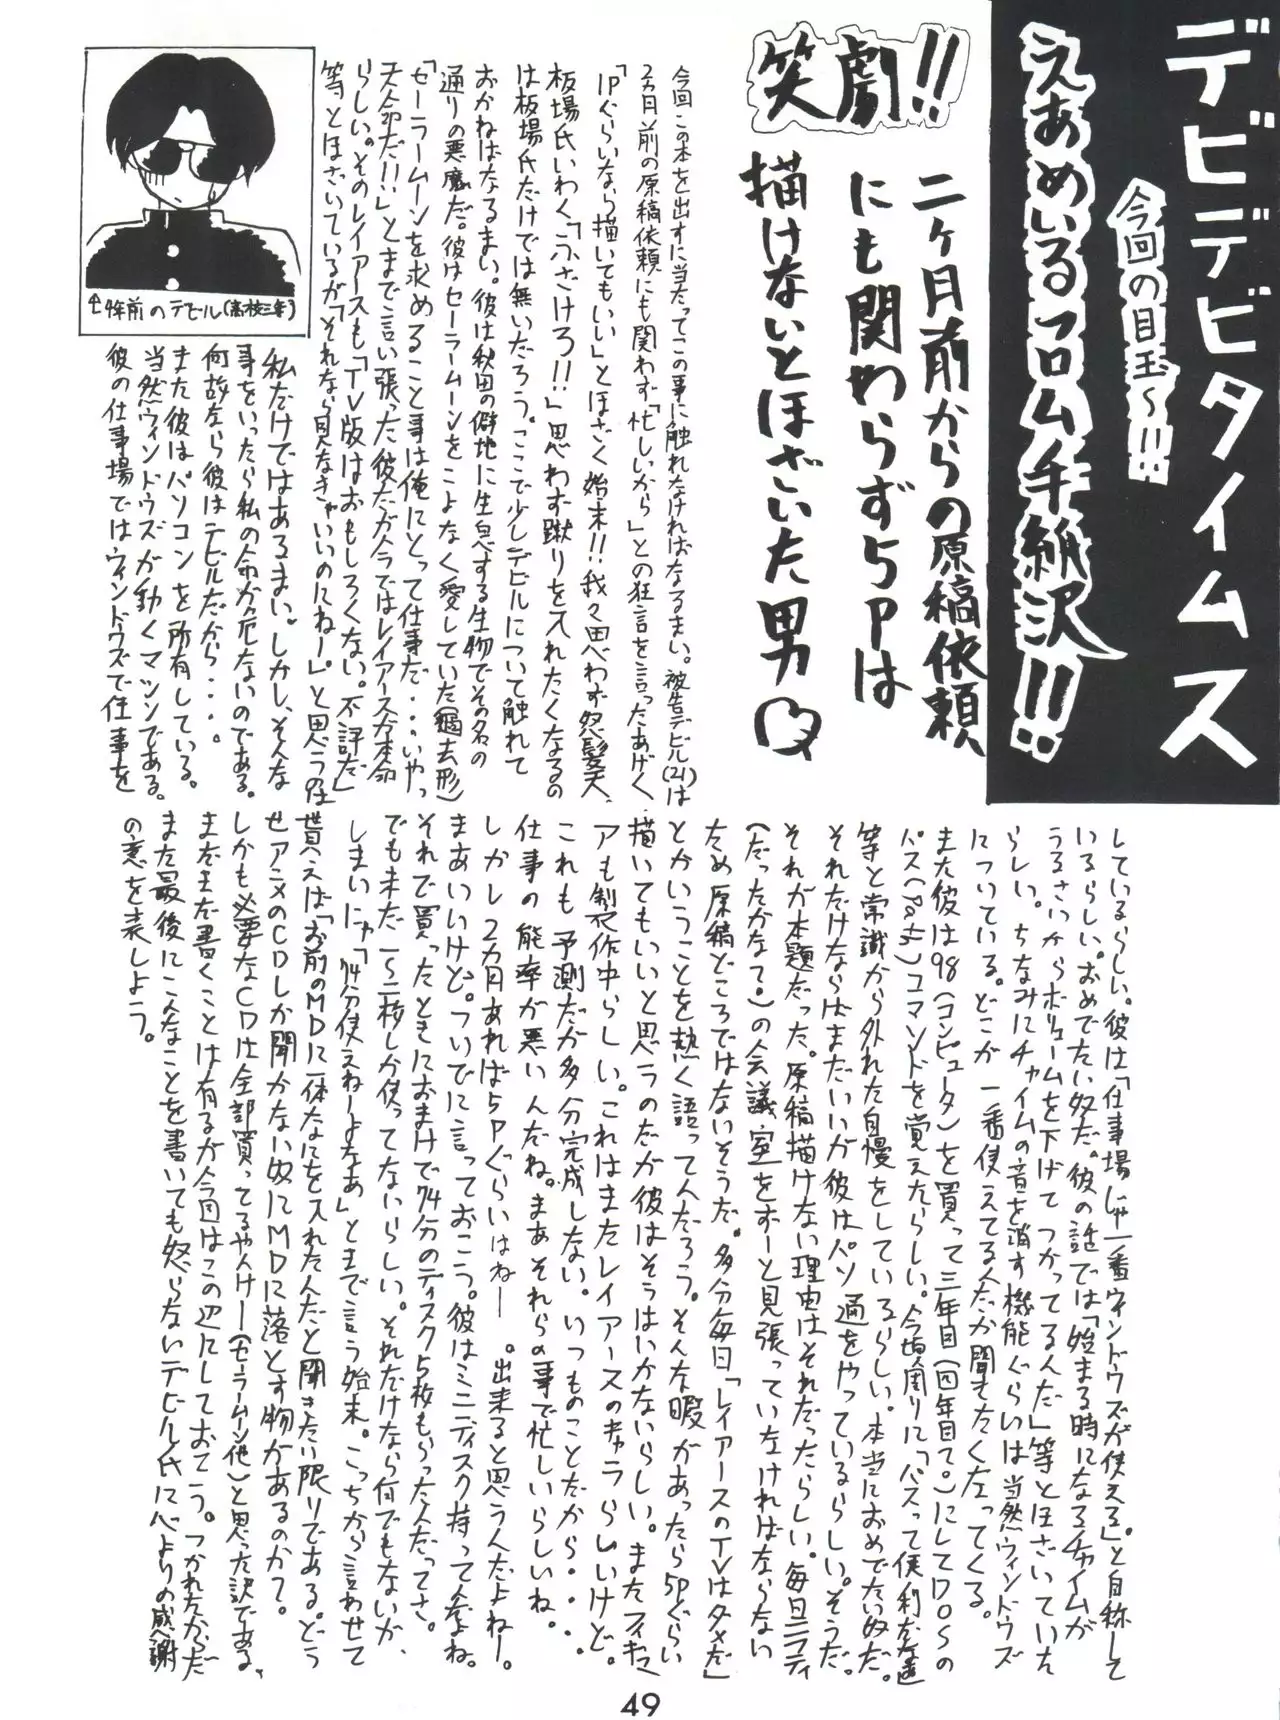 デビデビタイムス
今回の目玉〜!!
えあめいるフロム手紙沢!!
笑劇!!
二ヶ月前からの原稿依頼
にも関わらず5Pは
描けないとほざいた男
今回この本を出すに当たってこの事に触れなければなるまい。被告デビル(21)は
2ヵ月前の原稿依頼にも関わず「忙しいから」との狂言を言ったあげく
「1Pぐらいなら描いてもいい」とほざく始末!!我々思わず怒髪天、
板場氏いわく「ふざけろ!!」思わず蹴りを入れたくなるの
は板場氏だけでは無いだろう。ここで少しデビルについて触れて
おかねばなるまい。彼は秋田の僻地に生息する生物でその名の
通りの悪魔だ。彼はセーラームーンをこよなく愛していた(過去形)
「セーラームーンを求めること事は俺にとって仕事だ・・・いやっ
天命だ!!」とまで言い張った彼だが今ではレイアースが本命
らしい。そのレイアースも「TV版はおもしろくない。不評だ」
等とほざいているが「それなら見なきゃいいのにねー」と思うのは
↑4年前のデビル(高校三年)
私だけではあるまい。しかし、そんな
事をいったら私の命が危ないのである。
何故なら彼はデビルだから・・・・。
また彼はパソコンを所有している。
当然ウィンドウズが動くマッシンである。
彼の仕事場ではウィンドウズで仕事を
しているらしい。彼は「仕事場じゃ一番ウィンドウズが使える」と自称して
いるらしい。おめでたい奴だ。彼の話では「始まる時になるチャイムが
うるさいからボリュームを下げてつかってるんだ」等とほざいていた
らしい。ちなみにチャイムの音を消す機能ぐらいは当然ウィンドウズ
についている。どこが一番使えてるんだか聞きたくなってくる。
また彼は98(コンピュータ)を買って三年目(四年目?)にしてDOSの
パス(Path)コマンドを覚えたらしい。今頃周りに「パスって便利だな」
等と常識から外れた自慢をしているらしい。本当におめでたい奴だ。
それだけならばまだいいが彼はパソ通をやっているらしい。そうだ。
それが本題だった。原稿描けない理由はそれだったらしい。毎日ニフティ
(だったかな?)の会議室をずーと見張っていなければならない
ため原稿どころではないそうだ。多分毎日「レイアースのTVはダメだ」
とかいうことを熱く語ってんだろう。そんな暇があったら5Pぐらい
描いてもいいと思うのだが彼はそうはいかないらしい。またフィギュ
アも製作中らしい。これはまたレイアースのキャラらしいけど。
これも予測だが多分完成しない。いつものことだから・・・・。
仕事の能率が悪いんだね。まあそれらの事で忙しいらしいね。
しかし2カ月あれば5Pぐらいはねー。出来ると思うんだよねー。
まあいいけど。ついでに言っておこう。彼はミニディスク持ってんだよね。
それで買ったときにおまけで74分のディスク5枚もらったんだってさ。
でもまだ一〜二枚しか使ってないらしい。それだけなら何でもないが、
しまいにゃ「74分使えねーよなあ」とまで言う始末。こっちから言わせて
貰えば「お前のMDに一体なにを入れたんだと聞きたい限りである。どう
せアニメのCDしか聞かない奴にMDに落とす物があるのか?
しかも必要なCDは全部買ってるやんけー(セーラームーン他)と思った訳である。
まだまだ書くことは有るが今回はこの辺にしておこう。つかれたからだ
また最後にこんなことを書いても怒らないデビル氏に心よりの感謝
の意を表しよう。
49